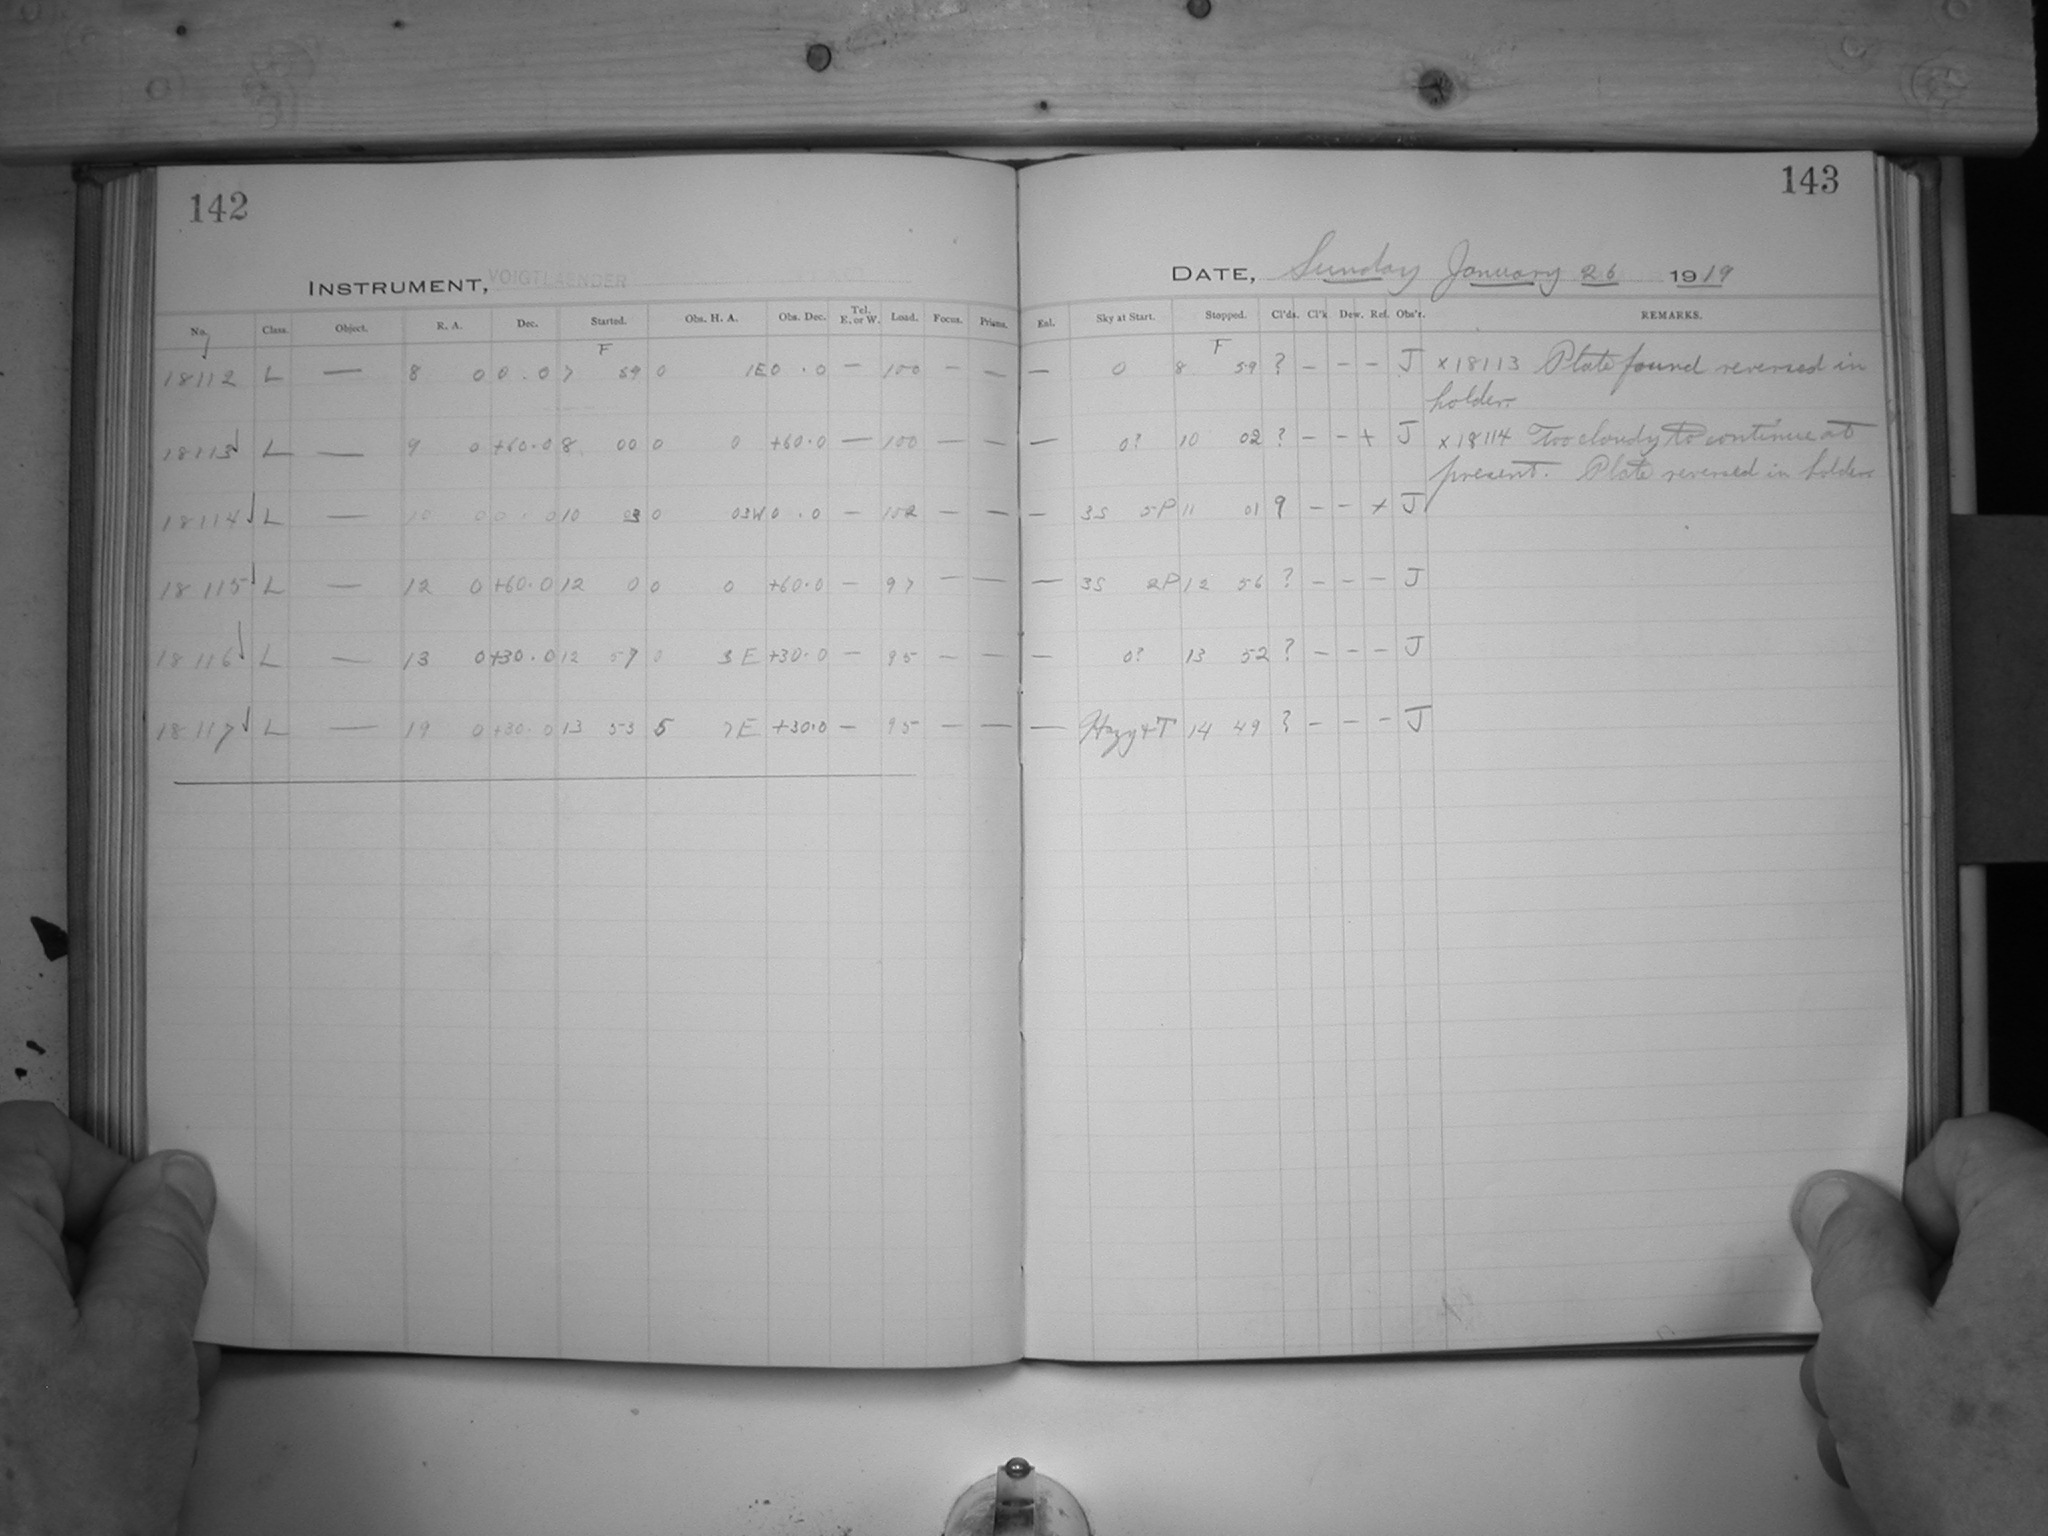 142
143
INSTRUMENT, VOIGTLAENDER
DATE, Sunday January 26 1919
No. Class. Object. R. A. Dec. Started. Obs. H. A. Obs. Dec. Tel. E. or W. Load. Focus. Prisms. Enl. Sky at Start. Stopped. Cl'ds. Cl'k Dew. Ref. Obs'r. REMARKS.
F F
18112 L — 8 0 0 . 0 7 59 0 1E 0 . 0 — 100 — — — 0 8 59 ? — — — J x18113 Plate found reversed in
holder.
18113 L — 9 0 +60.0 8 00 0 0 +60.0 — 100 — — — 0? 10 02 ? — — + J x18114 Too cloudy to continue at
present. Plate reversed in holder
18114 L — 10 0 0 . 0 10 03 0 03W 0 . 0 — 102 — — — 3S 5P 11 01 9 — — + J
18115 L — 12 0 +60.0 12 0 0 0 +60.0 — 97 — — — 3S 2P 12 56 ? — — — J
18116 L — 13 0 +30.0 12 57 0 3E +30.0 — 95 — — — 0? 13 52 ? — — — J
18117 L — 19 0 +30.0 13 53 5 7E +30.0 — 95 — — — Hazy+T 14 49 ? — — — J